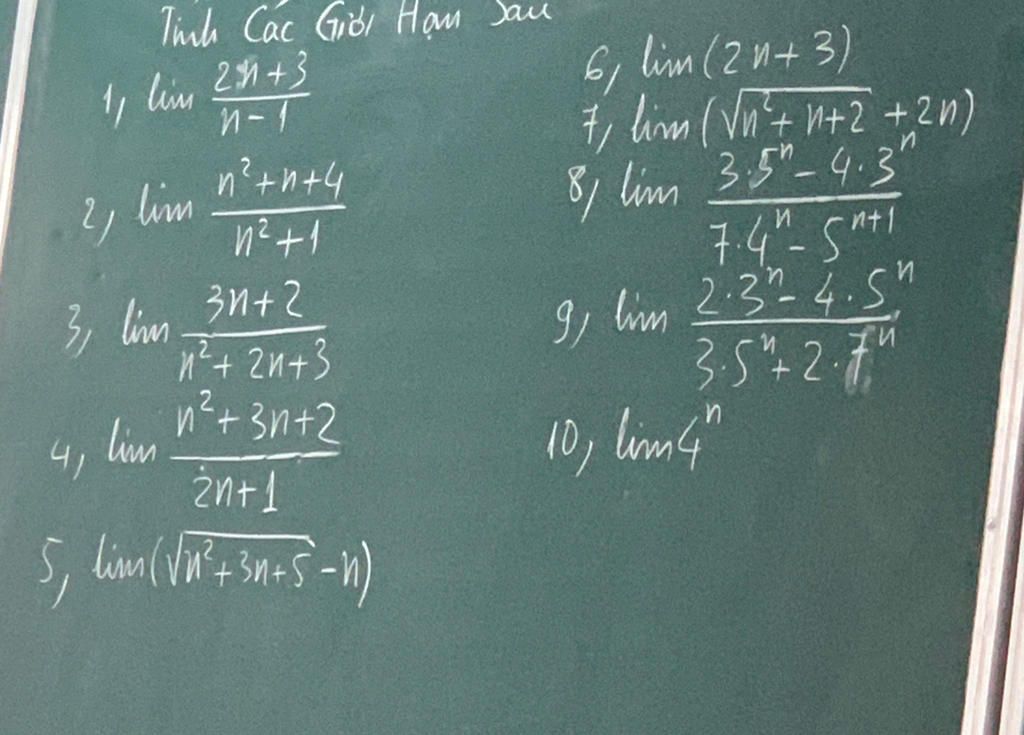 Tính Các Giới Hạn Sau
1, lim (2n+3)/(n-1)
2, lim (n²+n+4)/(n²+1)
3, lim (3n+2)/(n²+2n+3)
4, lim (n²+3n+2)/(2n+1)
5, lim(√(n²+3n+5) -n)
6, lim(2n+3)
7, lim(√(n²+n+2) +2n)
8, lim (3·5ⁿ - 4·3ⁿ)/(7·4ⁿ - 5ⁿ⁺¹)
9, lim (2·3ⁿ - 4·5ⁿ)/(3·5ⁿ + 2·7ⁿ)
10, lim4ⁿ